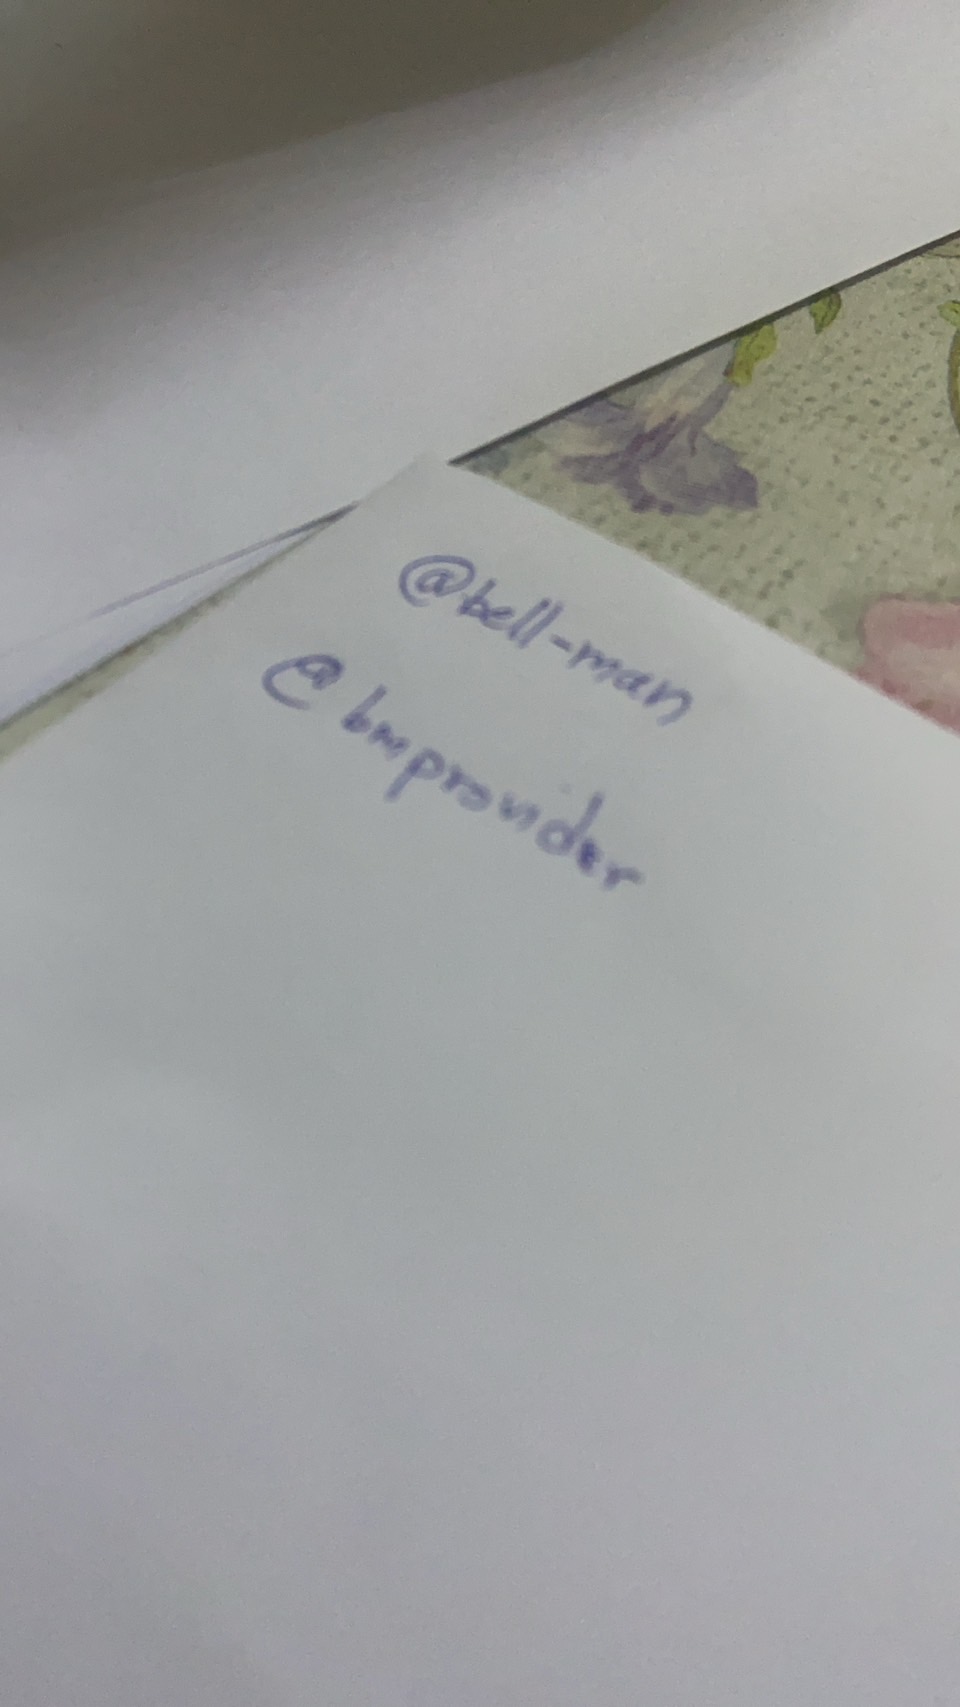 @bell-man
@bmprovider